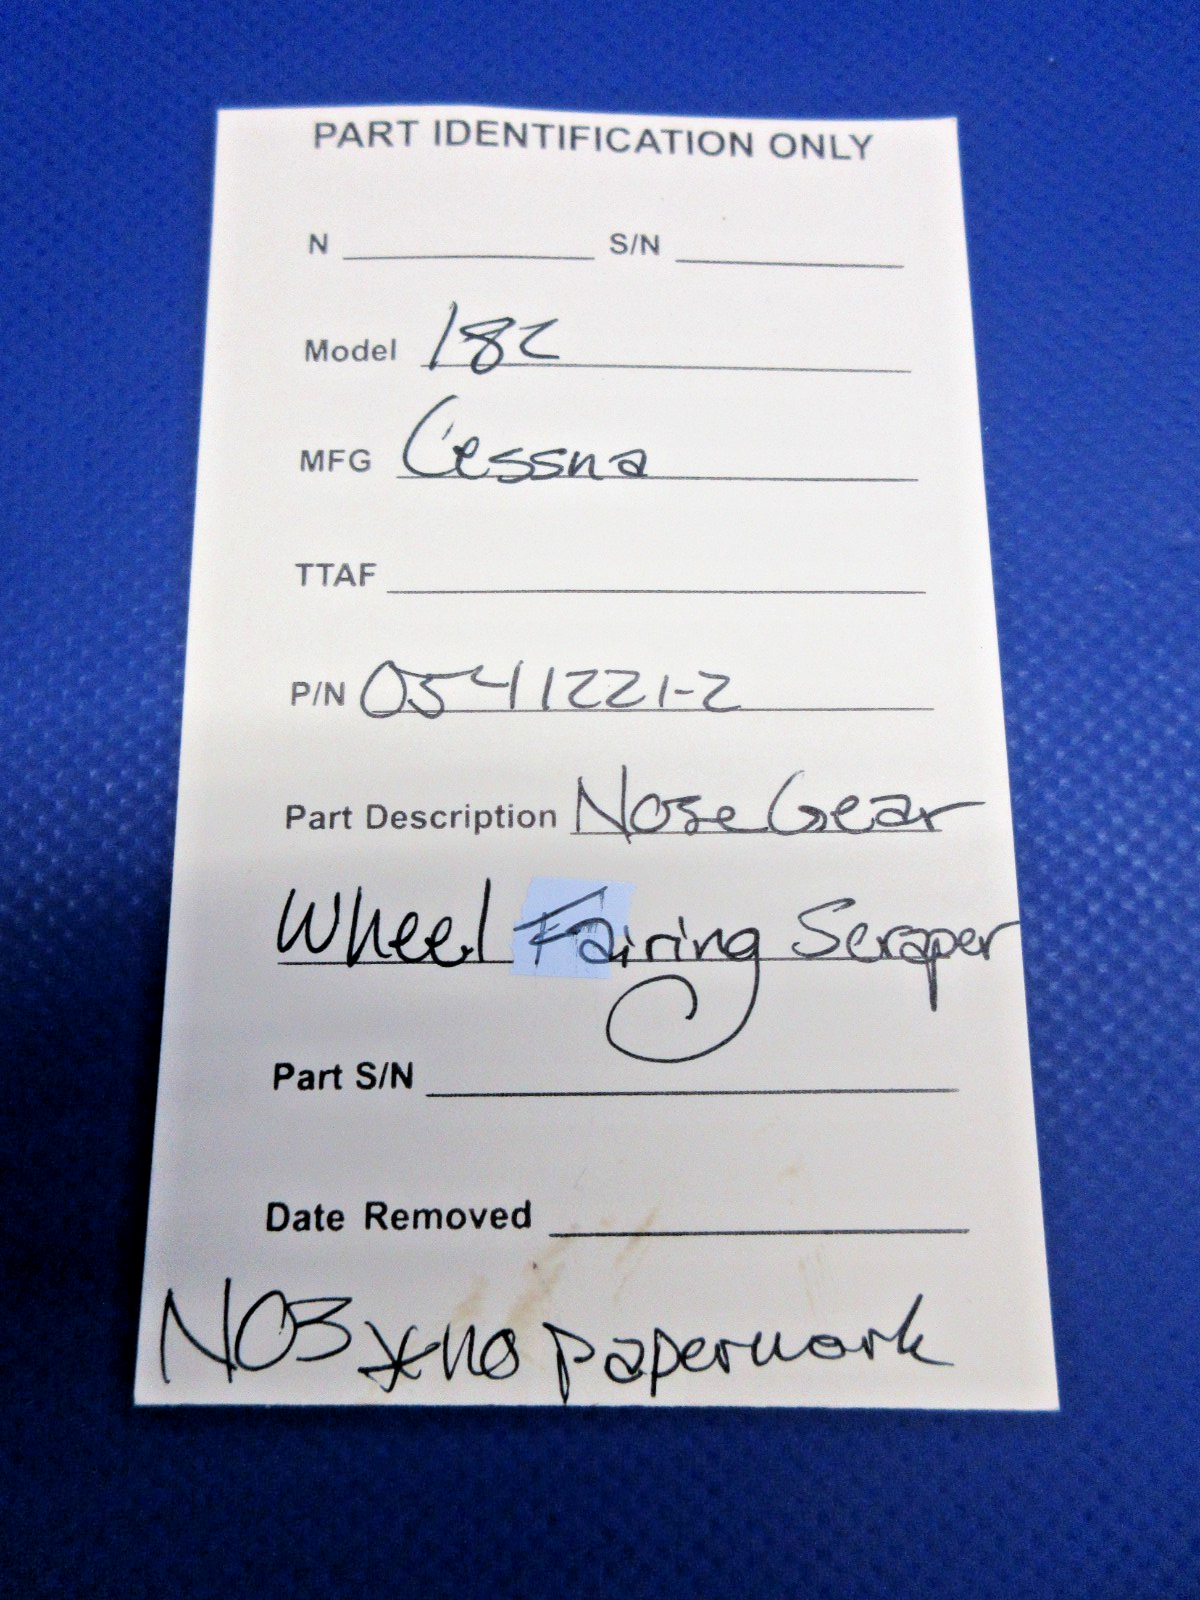 PART IDENTIFICATION ONLY
N S/N
Model 182
MFG Cessna
TTAF
P/N 0541221-2
Part Description Nose Gear
Wheel Fairing Scraper
Part S/N
Date Removed
NOS *no paperwork